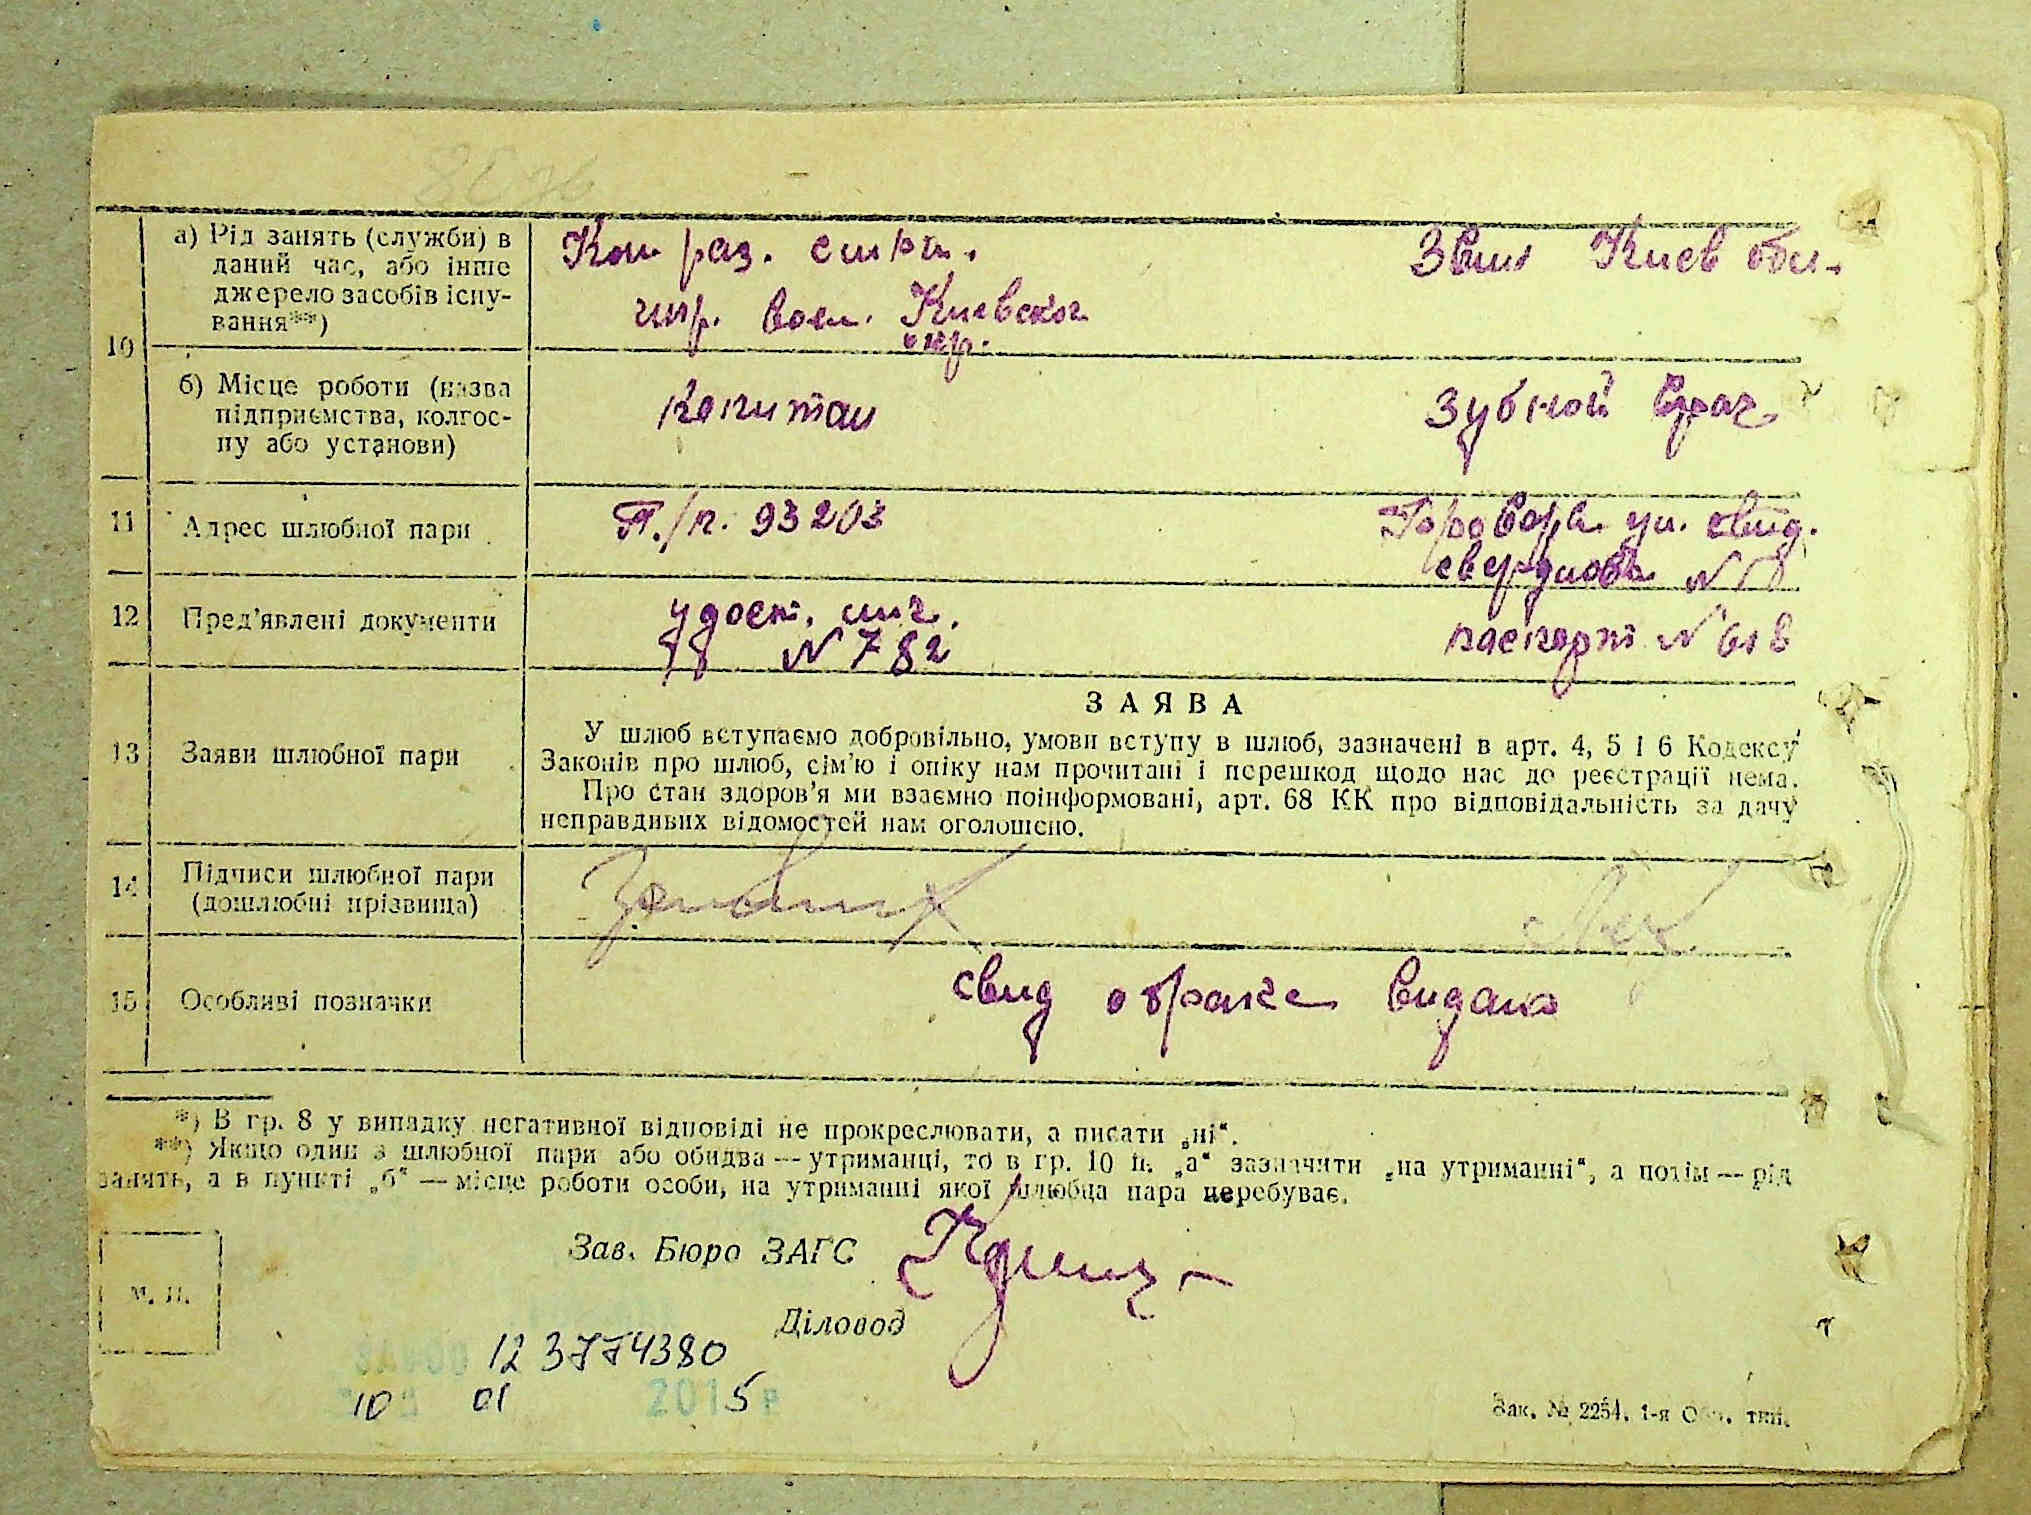 10
а) Рід занять (служби) в
даний час, або інше
джерело засобів існу-
вання**)
раз.
Киевског
окр.
Киев обл.
б) Місце роботи (назва
підприємства, колгос-
пу або установи)
капитан
зубной врач
11
Адрес шлюбної пари
П./п. 93203
ул.
свердлова N 18
12
Пред'явлені документи
удост. лич.
N 782
паспорт N
13
Заяви шлюбної пари
ЗАЯВА
У шлюб вступаємо добровільно, умови вступу в шлюб, зазначені в арт. 4, 5 і 6 Кодексу
Законів про шлюб, сім'ю і опіку нам прочитані і перешкод щодо нас до реєстрації нема.
Про стан здоров'я ми взаємно поінформовані, арт. 68 КК про відповідальність за дачу
неправдивих відомостей нам оголошено.
14
Підписи шлюбної пари
(дошлюбні прізвища)
15
Особливі позначки
свид о браке видано
*) В гр. 8 у випадку негативної відповіді не прокреслювати, а писати „ні“.
**) Якщо один з шлюбної пари або обидва — утриманці, то в гр. 10 п. „а“ зазначити „на утриманні“, а потім — рід
занять, а в пункті „б“ — місце роботи особи, на утриманні якої шлюбна пара перебуває.
Зав. Бюро ЗАГС
м. п.
Діловод
12 3774380
10 01 2015 р
Зак. № 2254. 1-я тип.